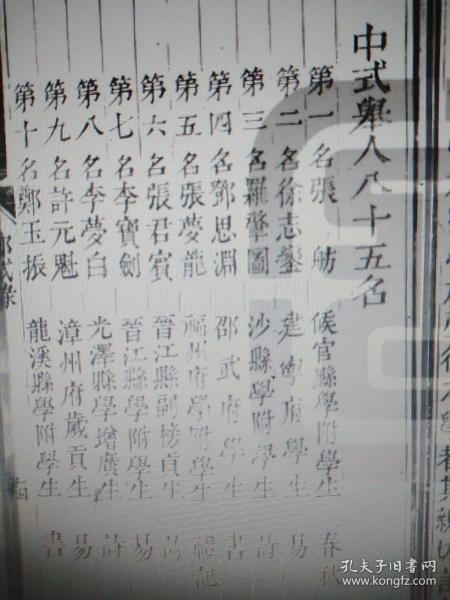 中式舉人八十五名
第一名張 舫 候官縣學附學生 春秋
第二名徐志鑾 建寧府學生 易
第三名羅肇圖 沙縣學附學生 詩
第四名鄧思淵 邵武府學生 書
第五名張夢龍 福州府學附學生 禮記
第六名張君賓 晉江縣副榜貢生
第七名李寶劍 晉江縣學附學生 易
第八名李夢白 光澤縣學增廣生 詩
第九名許元魁 漳州府歲貢生 易
第十名鄭玉振 龍溪縣學附學生 書
孔夫子旧书网
www.kongfz.com